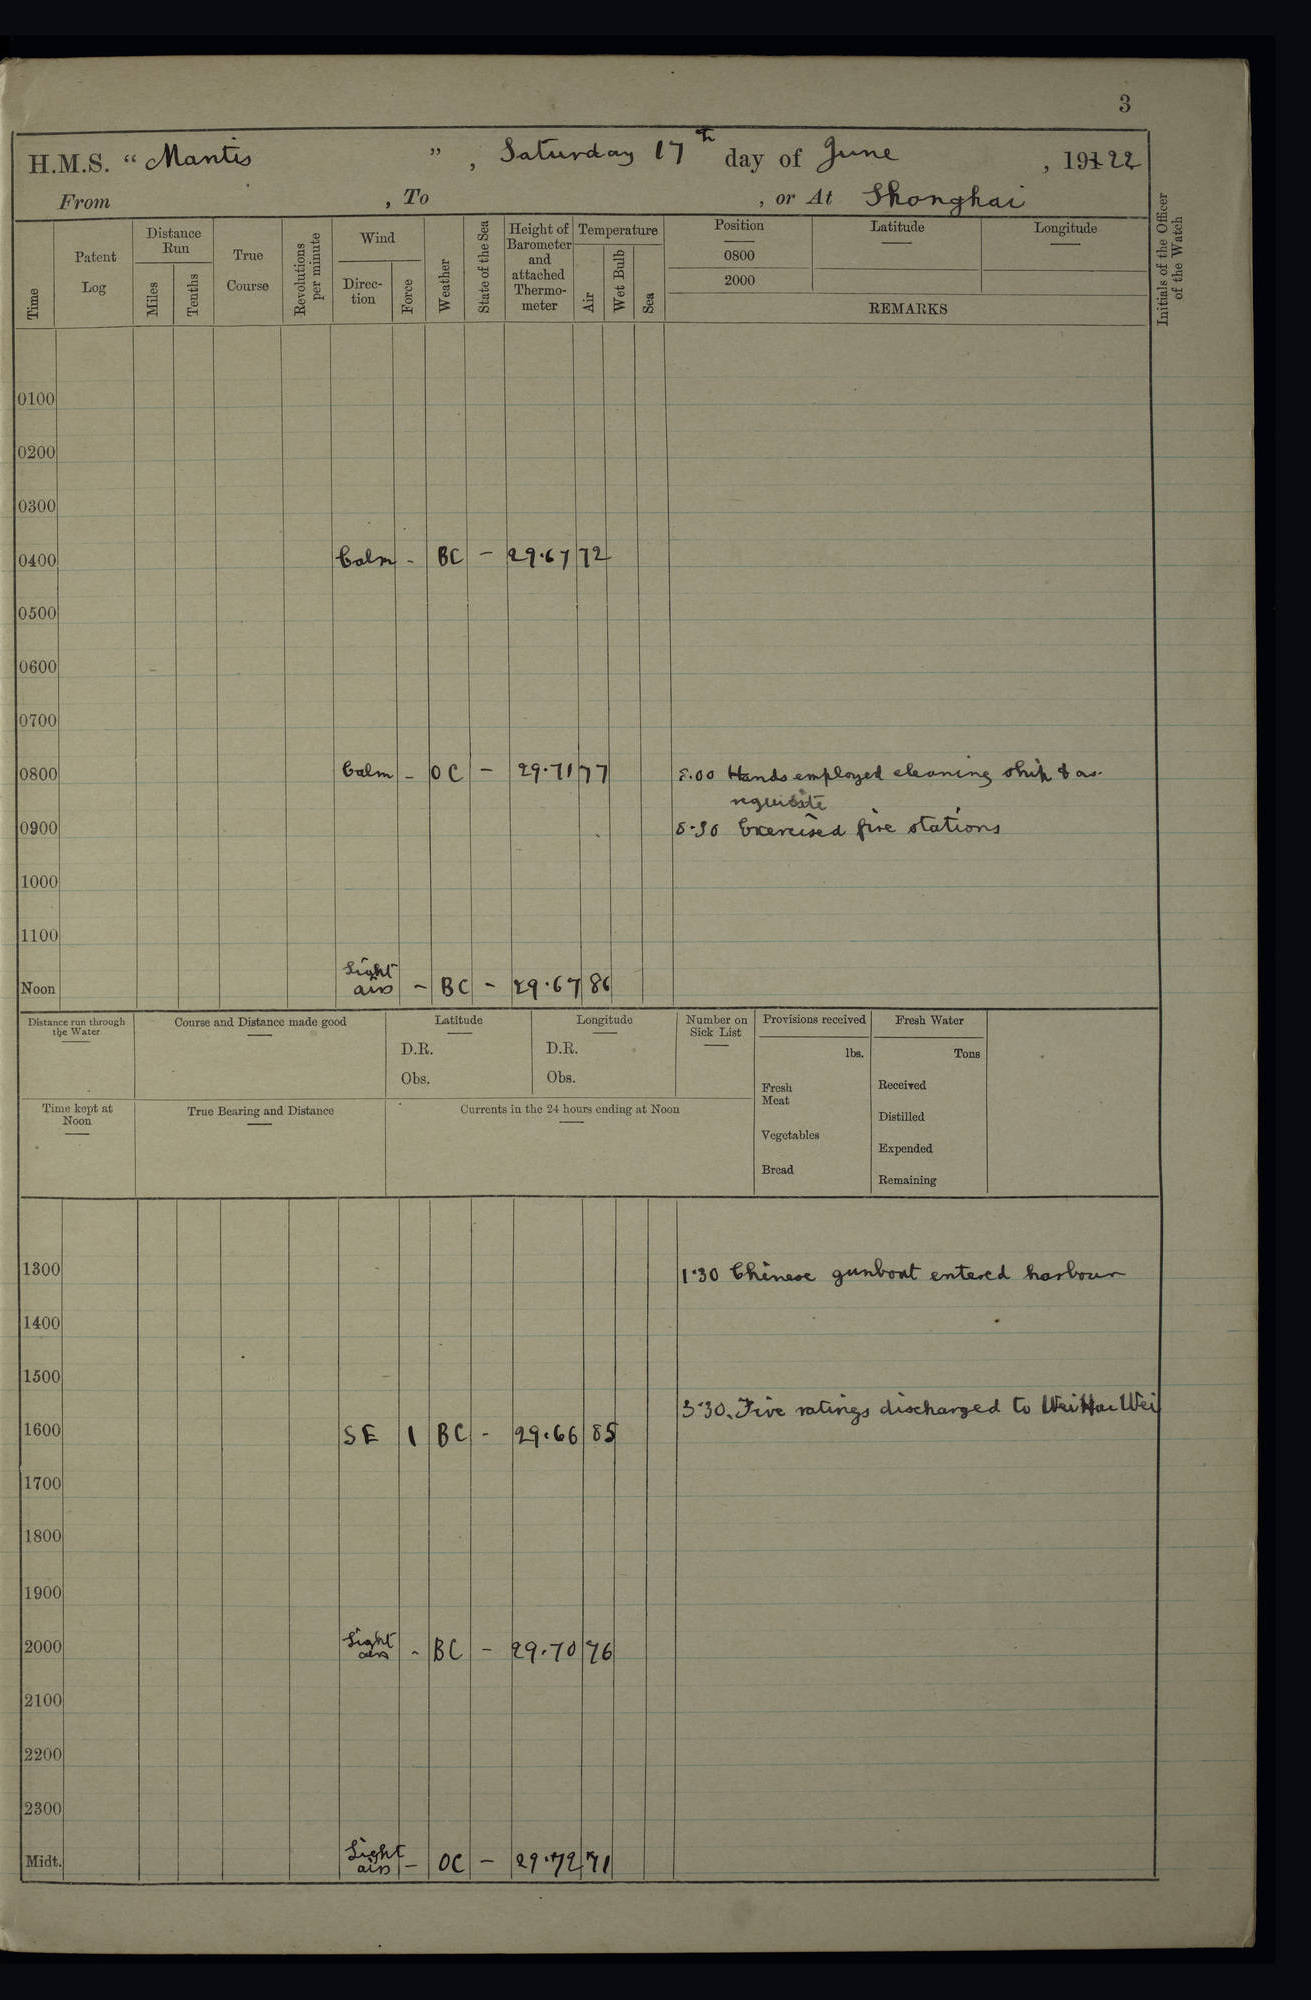 3
H.M.S. “ Mantis ” , Saturday 17th day of June , 191 22
From , To , or At Shanghai
Time
Patent Log
Distance Run
Miles
Tenths
True Course
Revolutions per minute
Wind
Direc-tion
Force
Weather
State of the Sea
Height of Barometer and attached Thermo-meter
Temperature
Air
Wet Bulb
Sea
Position
Latitude
Longitude
0800
2000
REMARKS
Initials of the Officer of the Watch
0100
0200
0300
0400 Calm - BC - 29.67 72
0500
0600
0700
0800 Calm - OC - 29.71 77 8.00 Hands employed cleaning ship & as
requisite
0900 8.30 Exercised fire stations
1000
1100
Noon Light airs - BC - 29.67 86
Distance run through the Water
Course and Distance made good
Latitude
D.R.
Obs.
Longitude
D.R.
Obs.
Number on Sick List
Provisions received
lbs.
Fresh Meat
Vegetables
Bread
Fresh Water
Tons
Received
Distilled
Expended
Remaining
Time kept at Noon
True Bearing and Distance
Currents in the 24 hours ending at Noon
1300 1.30 Chinese gunboat entered harbour
1400
1500
3.30. Five ratings discharged to Wei Hai Wei
1600 SE 1 BC - 29.66 85
1700
1800
1900
2000 Light airs - BC - 29.70 76
2100
2200
2300
Midt. Light airs - OC - 29.72 71